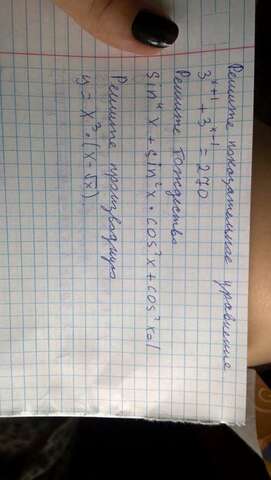 Решите показательные уравнение
3ˣ⁺¹ + 3ˣ⁻¹ = 270
Решите тождество
sin⁴x + sin²x · cos²x + cos²x = 1
Решите производную
y = x³ · (x · √x)